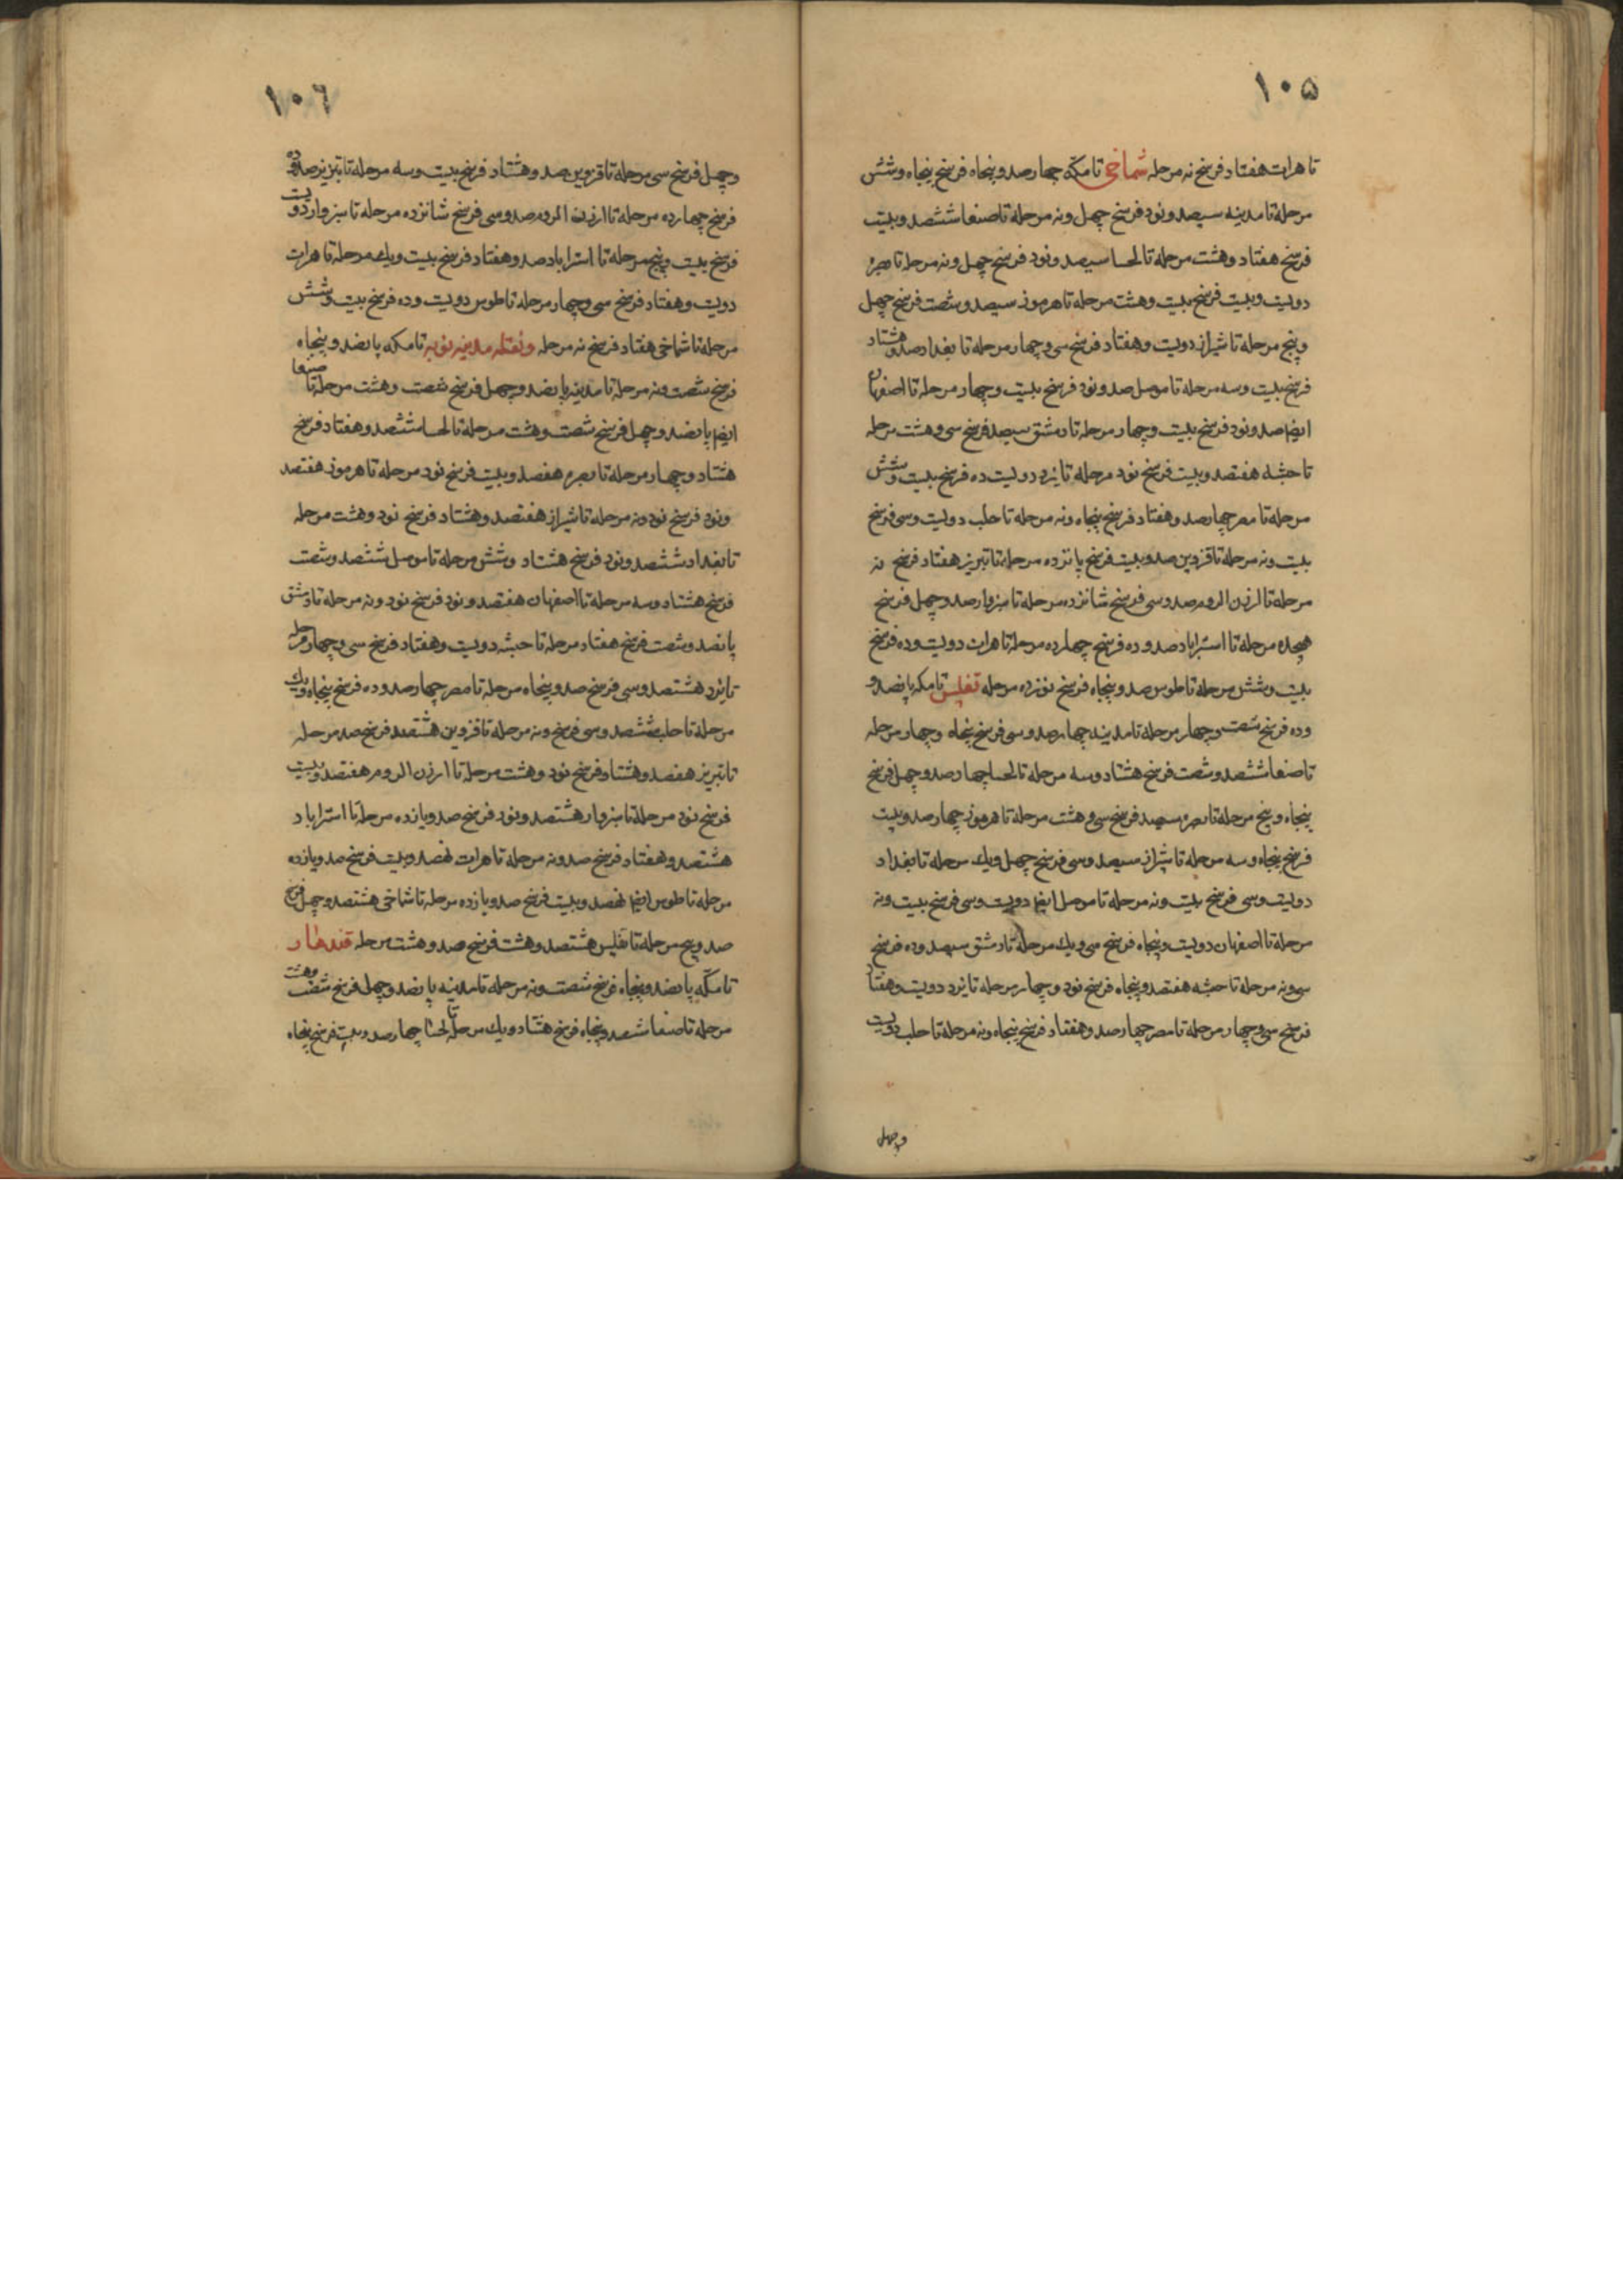 ۱۰۵
تا هرات هفتاد فرسخ نه مرحله شماخی تا مکّه چهارصد و پنجاه فرسخ پنجاه و شش
مرحله تا مدینه سیصد و نود فرسخ چهل و نه مرحله تا صنعا ششصد و بیست
فرسخ هفتاد و هشت مرحله تا لحسا سیصد و نود فرسخ چهل و نه مرحله تا بصره
دویست و بیست فرسخ بیست و هشت مرحله تا هرموز سیصد و شصت فرسخ چهل
و پنج مرحله تا شیراز دویست و هفتاد فرسخ سی و چهار مرحله تا بغداد صد و هشتاد
فرسخ بیست و سه مرحله تا موصل صد و نود فرسخ بیست و چهار مرحله تا اصفهان
ایضا صد و نود فرسخ بیست و چهار مرحله تا دمشق سیصد فرسخ سی و هشت مرحله
تا حبشه هفتصد و بیست فرسخ نود مرحله تا یزد دویست ده فرسخ بیست و شش
مرحله تا مصر چهارصد و هفتاد فرسخ پنجاه و نه مرحله تا حلب دویست و سی فرسخ
بیست و نه مرحله تا قزوین صد و بیست فرسخ پانزده مرحله تا تبریز هفتاد فرسخ نه
مرحله تا ارزن الروم صد و سی فرسخ شانزده مرحله تا سبزوار صد و چهل فرسخ
هجده مرحله تا استراباد صد و ده فرسخ چهارده مرحله تا هرات دویست و ده فرسخ
بیست و شش مرحله تا طوس صد و پنجاه فرسخ نوزده مرحله تفلیس تا مکه پانصد و
و ده فرسخ شصت و چهار مرحله تا مدینه چهارصد و سی فرسخ پنجاه و چهار مرحله
تا صنعا ششصد و شصت فرسخ هشتاد و سه مرحله تا لحسا چهارصد و چهل فرسخ
پنجاه و پنج مرحله تا بصره سیصد فرسخ سی و هشت مرحله تا هرموز چهارصد و بیست
فرسخ پنجاه و سه مرحله تا شیراز سیصد و سی فرسخ چهل و یک مرحله تا بغداد
دویست و سی فرسخ بیست و نه مرحله تا موصل ایضا دویست و سی فرسخ بیست و نه
مرحله تا اصفهان دویست و پنجاه فرسخ سی و یک مرحله تا دمشق سیصد و ده فرسخ
سی و نه مرحله تا حبشه هفتصد و پنجاه فرسخ نود و چهار مرحله تا یزد دویست و هفتاد
فرسخ سی و چهار مرحله تا مصر چهارصد و هفتاد فرسخ پنجاه و نه مرحله تا حلب دویست
و چهل
۱۰۶
و چهل فرسخ سی مرحله تا قزوین صد و هشتاد فرسخ بیست و سه مرحله تا تبریز صد و ده
فرسخ چهارده مرحله تا ارزن الروم صد و سی فرسخ شانزده مرحله تا سبزوار دویست
فرسخ بیست و پنج مرحله تا استراباد صد و هفتاد فرسخ بیست و یک مرحله تا هرات
دویست و هفتاد فرسخ سی و چهار مرحله تا طوس دویست و ده فرسخ بیست و شش
مرحله تا شماخی هفتاد فرسخ نه مرحله مدینه نوبه تا مکه پانصد و پنجاه
فرسخ شصت و نه مرحله تا مدینه پانصد و چهل فرسخ شصت و هشت مرحله تا صنعا
ایضا پانصد و چهل فرسخ شصت و هشت مرحله تا لحسا ششصد و هفتاد فرسخ
هشتاد و چهار مرحله تا بصره هفصد و بیست فرسخ نود مرحله تا هرموز هفتصد
و نود فرسخ نود و نه مرحله تا شیراز هفتصد و هشتاد فرسخ نود و هشت مرحله
تا بغداد ششصد و نود فرسخ هشتاد و شش مرحله تا موصل ششصد و شصت
فرسخ هشتاد و سه مرحله تا اصفهان هفتصد و نود فرسخ نود و نه مرحله تا دمشق
پانصد و شصت فرسخ هفتاد مرحله تا حبشه دویست و هفتاد فرسخ سی و چهار مرحله
تا یزد هشتصد و سی فرسخ صد و پنجاه مرحله تا مصر چهارصد و ده فرسخ پنجاه و یک
مرحله تا حلب ششصد و سی فرسخ و نه مرحله تا قزوین هشتصد فرسخ صد مرحله
تا تبریز هفصد و هشتاد فرسخ نود و هشت مرحله تا ارزن الروم هفتصد و بیست
فرسخ نود مرحله تا سبزوار هشتصد و نود فرسخ صد و یازده مرحله تا استراباد
هشتصد و هفتاد فرسخ صد و نه مرحله تا هرات نهصد و بیست فرسخ صد و یازده
مرحله تا طوس ایضا نهصد و بیست فرسخ صد و یازده مرحله تا شماخی هشتصد و چهل فرسخ
صد و پنج مرحله تا تفلیس هشتصد و هشت فرسخ صد و هشت مرحله قندهار
تا مکّه پانصد و پنجاه فرسخ شصت و نه مرحله تا مدینه پانصد و چهل فرسخ شصت و هشت
مرحله تا صنعا ششصد و پنجاه فرسخ هشتاد و یک مرحله تا لحسا چهارصد و بیست فرسخ پنجاه